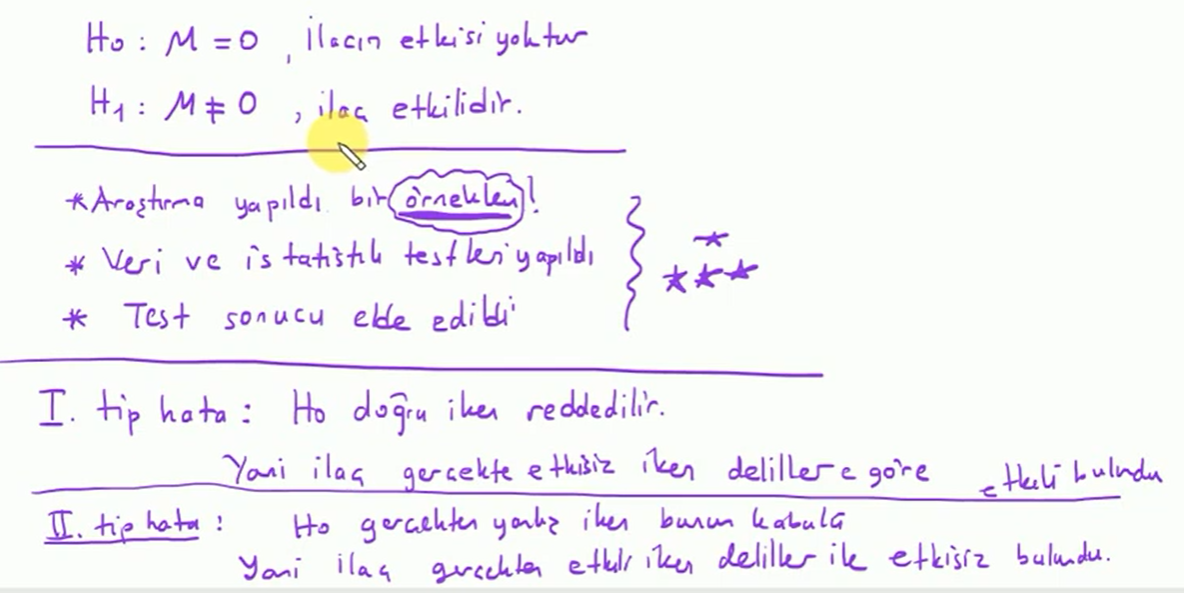 H0 : M = 0 , ilacın etkisi yoktur
H1 : M ≠ 0 , ilaç etkilidir.
* Araştırma yapıldı bir örneklen!
* Veri ve istatistik testleri yapıldı
* Test sonucu elde edildi
I. tip hata : Ho doğru iken reddedilir.
Yani ilaç gerçekte etkisiz iken delillere göre etkili bulundu
II. tip hata : Ho gerçekten yanlış iken bunun kabulü
Yani ilaç gerçekten etkili iken deliller ile etkisiz bulundu.